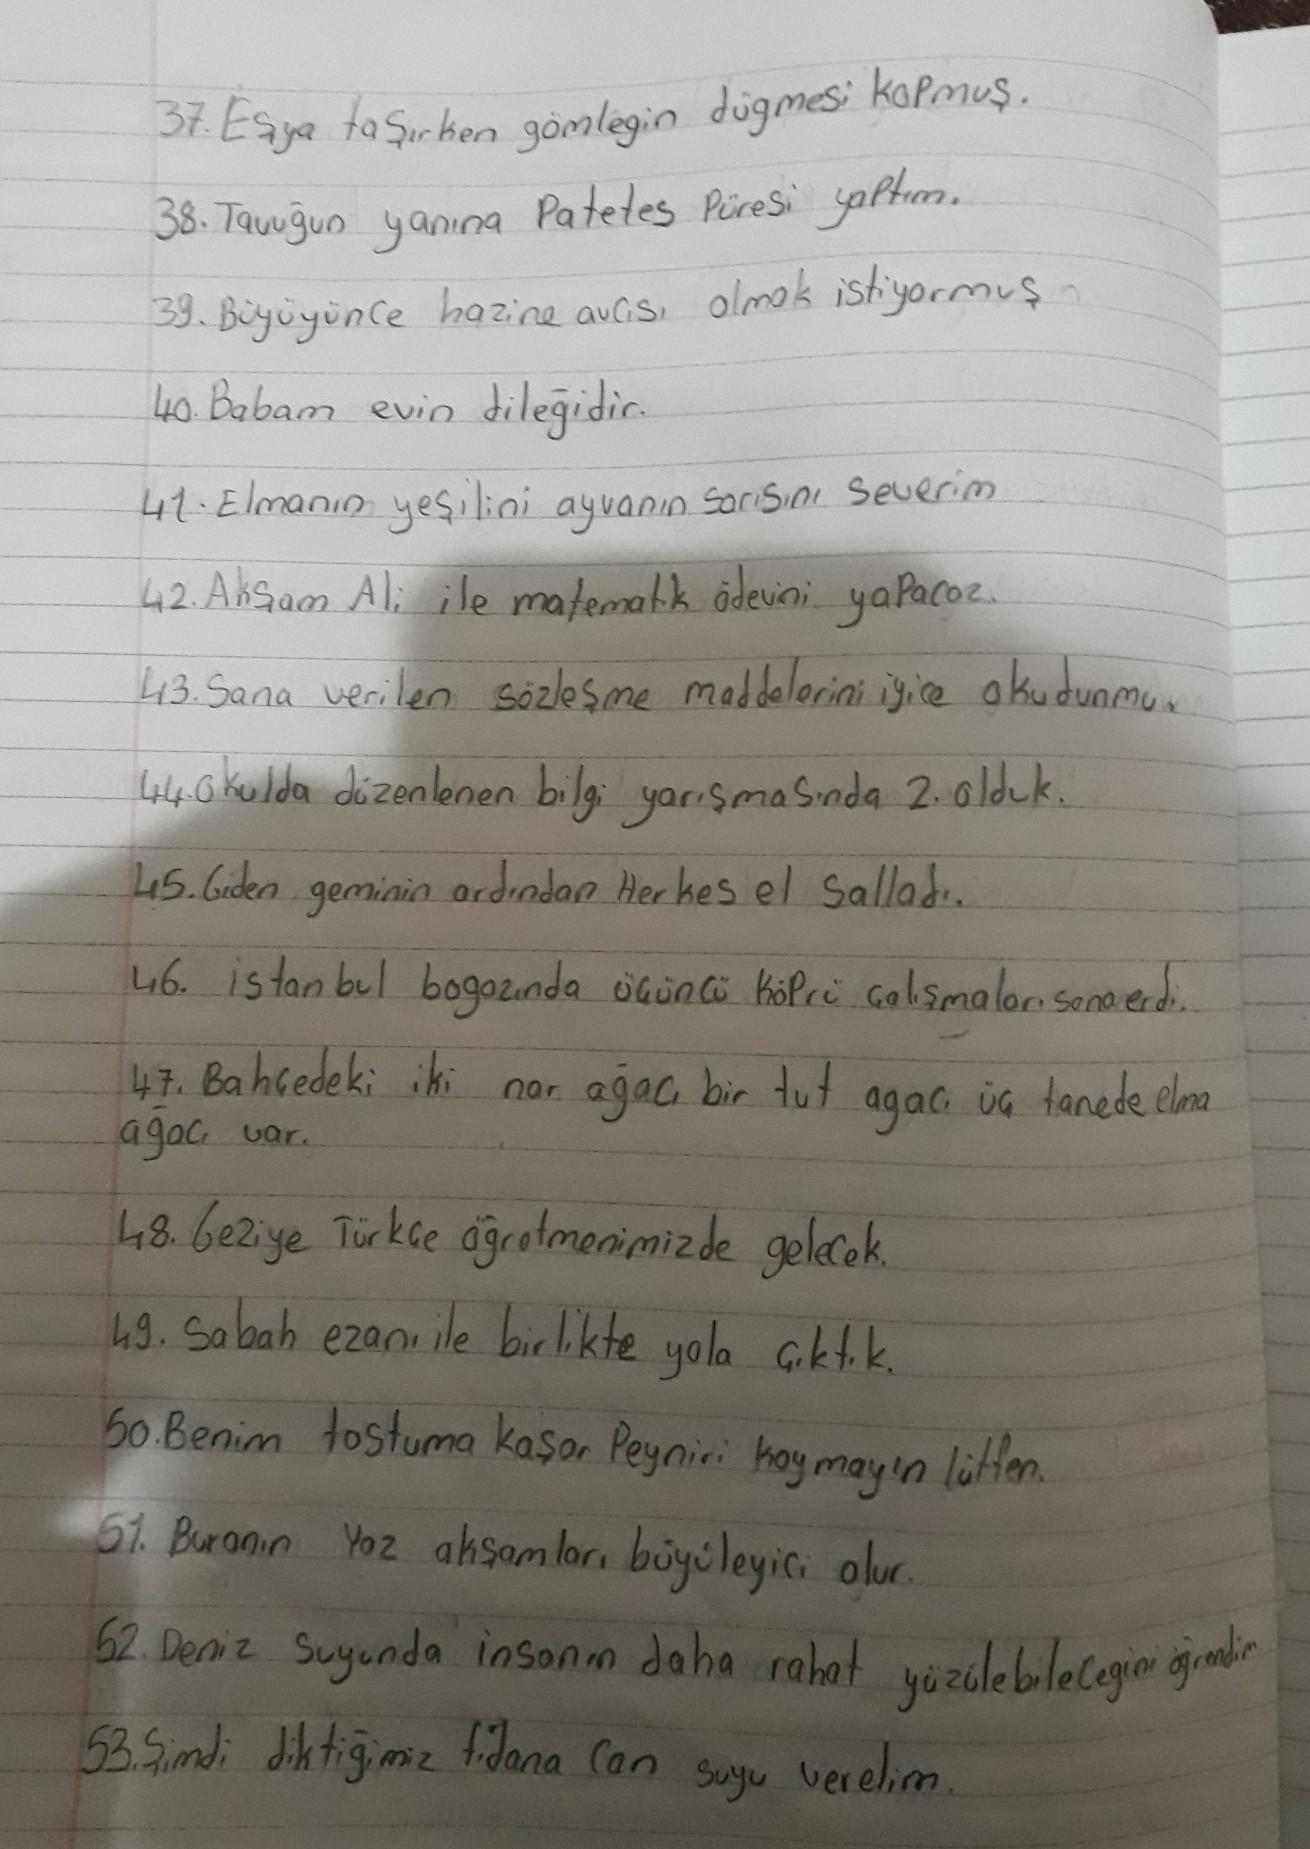 37. Eşya taşırken gömleğin düğmesi kopmuş.
38. Tavuğun yanına Patetes Püresi yaptım.
39. Büyüyünce hazine avcısı olmak istiyormuş
40. Babam evin dileğidir.
41. Elmanın yeşilini ayvanın sarısını severim
42. Akşam Ali ile matematik ödevini yapacaz.
43. Sana verilen sözleşme maddelerini iyice okudunmu.
44. Okulda düzenlenen bilgi yarışmasında 2. olduk.
45. Giden geminin ardından Herkes el Salladı.
46. istanbul bogazında üçüncü köprü çalışmaları sona erdi.
47. Bahçedeki iki nar ağacı bir tut agacı üç tanede elma
ağacı var.
48. Geziye Türkçe öğretmenimizde gelecek.
49. Sabah ezanı ile birlikte yola çıktık.
50. Benim tostuma kaşar Peyniri koymayın lütfen.
51. Buranın Yaz akşamları büyüleyici olur.
52. Deniz Suyunda insanın daha rahat yüzülebilecegini öğrendim
53. Şimdi diktiğimiz fidana Can suyu verelim.